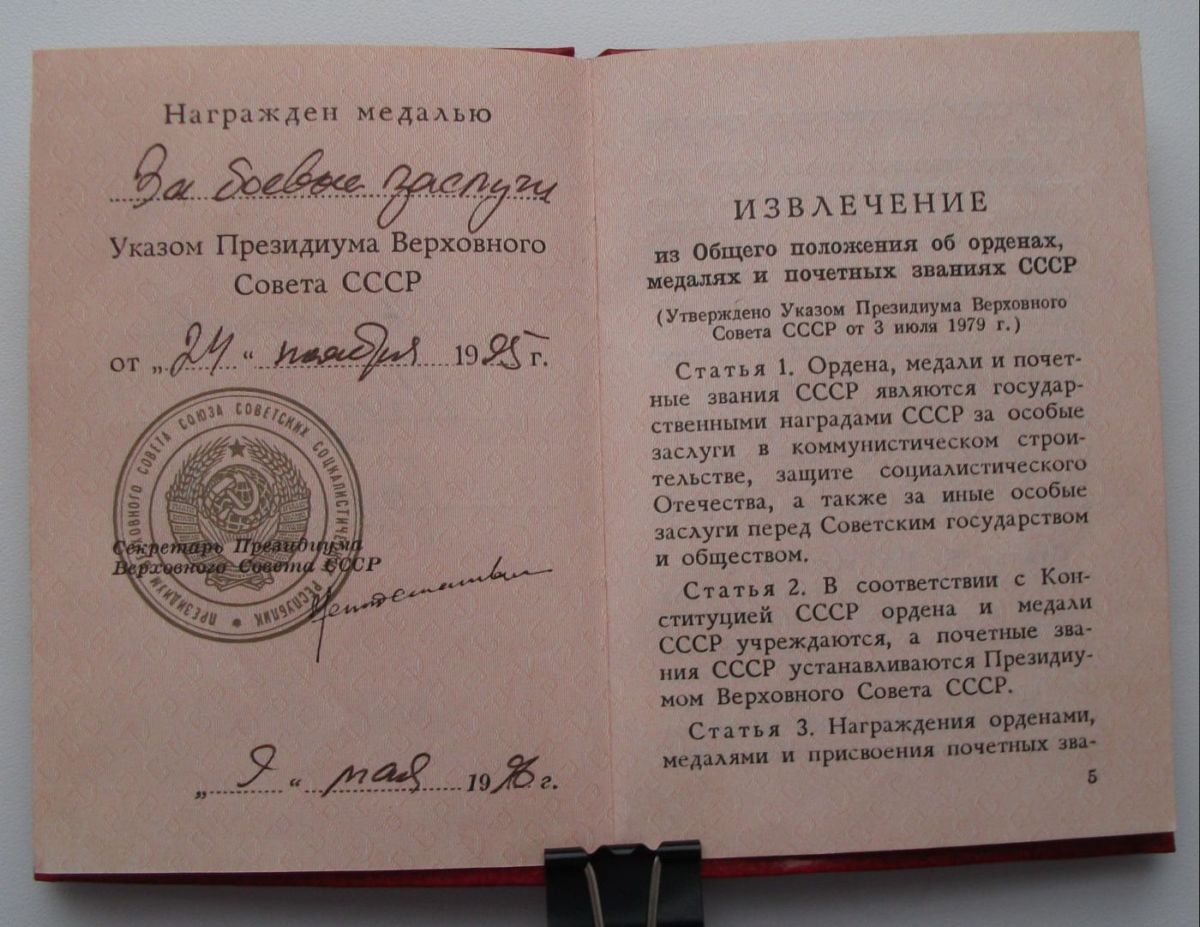 Награжден медалью
За боевые заслуги
Указом Президиума Верховного
Совета СССР
от „24“ ноября 1995 г.
ПРЕЗИДИУМ ВЕРХОВНОГО СОВЕТА СОЮЗА СОВЕТСКИХ СОЦИАЛИСТИЧЕСКИХ РЕСПУБЛИК
Секретарь Президиума
Верховного Совета СССР
„9“ мая 1996 г.
ИЗВЛЕЧЕНИЕ
из Общего положения об орденах,
медалях и почетных званиях СССР
(Утверждено Указом Президиума Верховного
Совета СССР от 3 июля 1979 г.)
Статья 1. Ордена, медали и почет-
ные звания СССР являются государ-
ственными наградами СССР за особые
заслуги в коммунистическом строи-
тельстве, защите социалистического
Отечества, а также за иные особые
заслуги перед Советским государством
и обществом.
Статья 2. В соответствии с Кон-
ституцией СССР ордена и медали
СССР учреждаются, а почетные зва-
ния СССР устанавливаются Президиу-
мом Верховного Совета СССР.
Статья 3. Награждения орденами,
медалями и присвоения почетных зва-
5